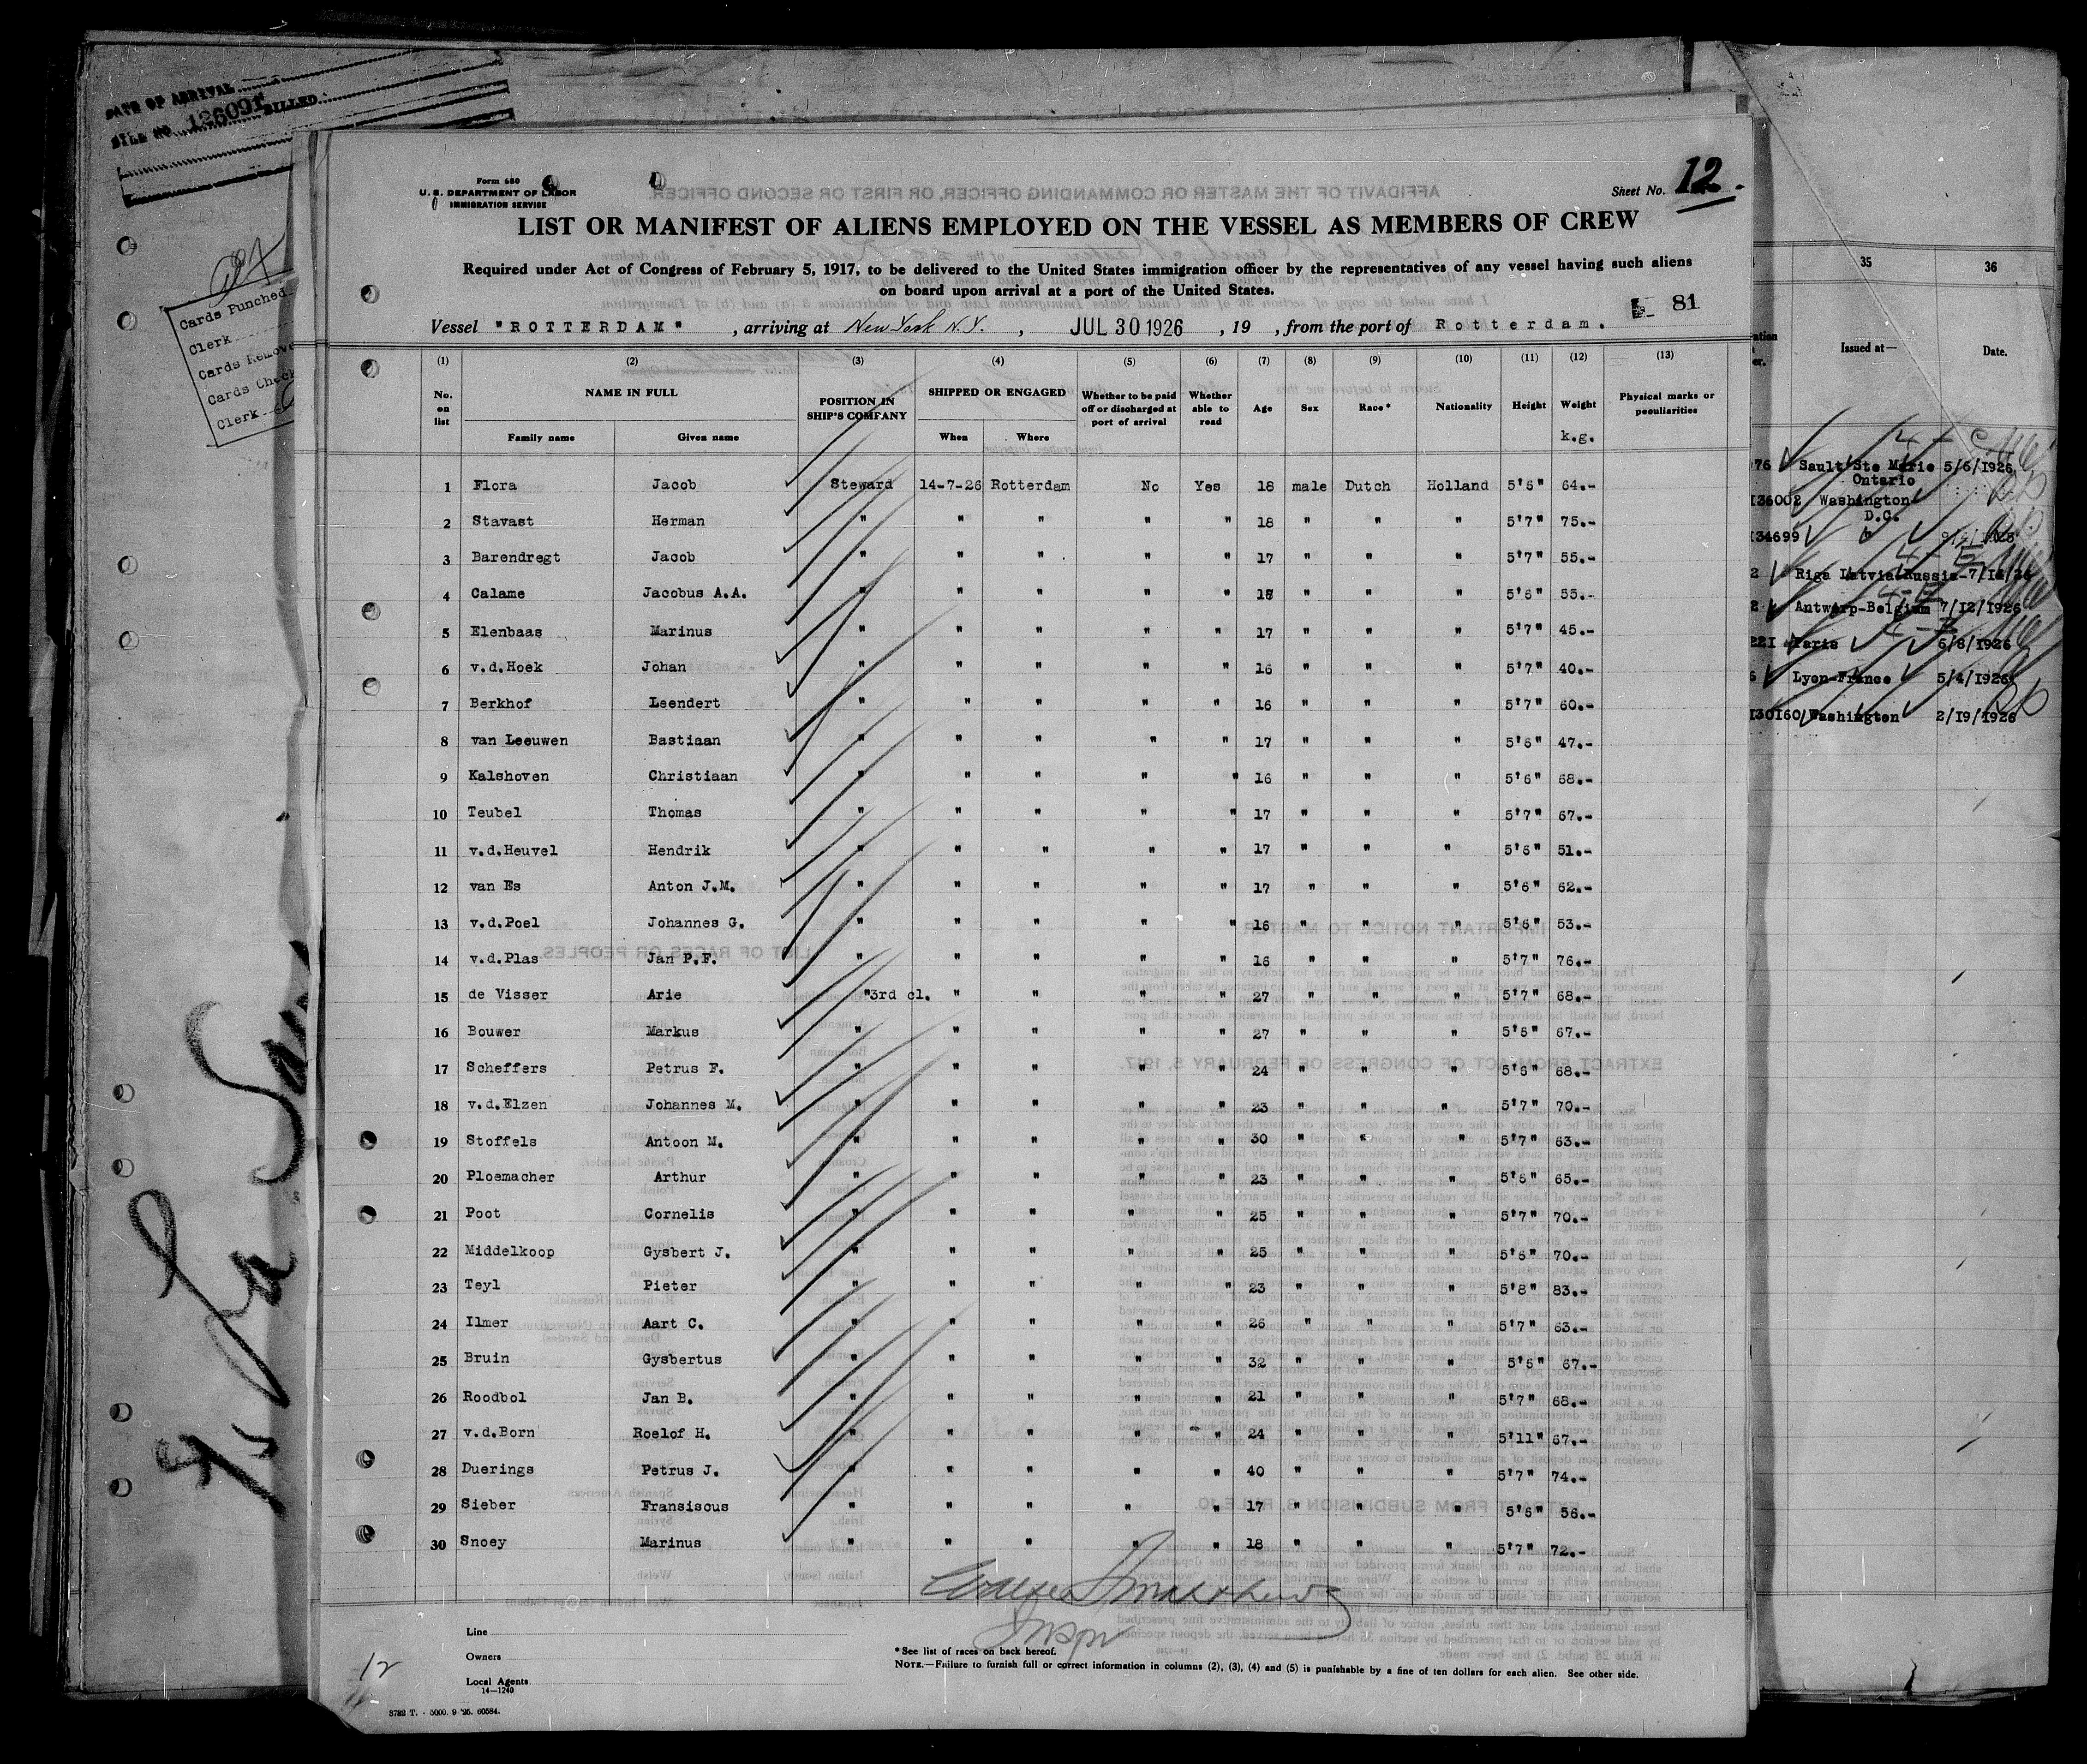 DATE OF ARRIVAL
FILE NO. 126091 BILLED
Cards Punched
Clerk
Cards Remove
Cards Check
Clerk
Form 680
U. S. DEPARTMENT OF LABOR
IMMIGRATION SERVICE
Sheet No. 12.
LIST OR MANIFEST OF ALIENS EMPLOYED ON THE VESSEL AS MEMBERS OF CREW
Required under Act of Congress of February 5, 1917, to be delivered to the United States immigration officer by the representatives of any vessel having such aliens
on board upon arrival at a port of the United States.
81
Vessel "ROTTERDAM" , arriving at New York N.Y. , JUL 30 1926 , 19 , from the port of Rotterdam.
(1) (2) (3) (4) (5) (6) (7) (8) (9) (10) (11) (12) (13)
No. on list NAME IN FULL Family name Given name POSITION IN SHIP'S COMPANY SHIPPED OR ENGAGED When Where Whether to be paid off or discharged at port of arrival Whether able to read Age Sex Race* Nationality Height Weight k.g. Physical marks or peculiarities
1 Flora Jacob Steward 14-7-26 Rotterdam No Yes 18 male Dutch Holland 5'6" 64.-
2 Stavast Herman " " " " " 18 " " " 5'7" 75.-
3 Barendregt Jacob " " " " " 17 " " " 5'7" 55.-
4 Calame Jacobus A.A. " " " " " 18 " " " 5'6" 55.-
5 Elenbaas Marinus " " " " " 17 " " " 5'7" 45.-
6 v.d.Hoek Johan " " " " " 16 " " " 5'7" 40.-
7 Berkhof Leendert " " " " " 16 " " " 5'7" 60.-
8 van Leeuwen Bastiaan " " " " " 17 " " " 5'6" 47.-
9 Kalshoven Christiaan " " " " " 16 " " " 5'6" 68.-
10 Teubel Thomas " " " " " 17 " " " 5'7" 67.-
11 v.d.Heuvel Hendrik " " " " " 17 " " " 5'6" 51.-
12 van Es Anton J.M. " " " " " 17 " " " 5'6" 62.-
13 v.d.Poel Johannes G. " " " " " 16 " " " 5'6" 53.-
14 v.d.Plas Jan P.F. " " " " " 16 " " " 5'7" 76.-
15 de Visser Arie "3rd cl. " " " " 27 " " " 5'7" 68.-
16 Bouwer Markus " " " " " 27 " " " 5'6" 67.-
17 Scheffers Petrus F. " " " " " 24 " " " 5'6" 68.-
18 v.d.Elzen Johannes M. " " " " " 23 " " " 5'7" 70.-
19 Stoffels Antoon M. " " " " " 30 " " " 5'7" 63.-
20 Ploemacher Arthur " " " " " 23 " " " 5'6" 65.-
21 Poot Cornelis " " " " " 25 " " " 5'7" 70.-
22 Middelkoop Gysbert J. " " " " " 25 " " " 5'6" 70.-
23 Teyl Pieter " " " " " 23 " " " 5'8" 83.-
24 Ilmer Aart C. " " " " " 26 " " " 5'7" 63.-
25 Bruin Gysbertus " " " " " 32 " " " 5'6" 67.-
26 Roodbol Jan B. " " " " " 21 " " " 5'7" 68.-
27 v.d.Born Roelof H. " " " " " 24 " " " 5'11" 67.-
28 Duerings Petrus J. " " " " " 40 " " " 5'7" 74.-
29 Sieber Fransiscus " " " " " 17 " " " 5'6" 56.-
30 Snoey Marinus " " " " " 18 " " " 5'7" 72.-
Line
Owners
Local Agents
14—1240
* See list of races on back hereof.
NOTE.—Failure to furnish full or correct information in columns (2), (3), (4) and (5) is punishable by a fine of ten dollars for each alien. See other side.
12
3782 T. - 5000. 9 '25. 60584.
35 36
Issued at— Date.
76 Sault Ste Marie 5/6/1926
Ontario
I36002 Washington
D.C.
I34699 "
2 Riga Latvia Russia-
2 Antwerp-Belgium 7/12/1926
221 Paris 6/8/1926
6 Lyon-France 5/4/1926
I30160 Washington 2/19/1926